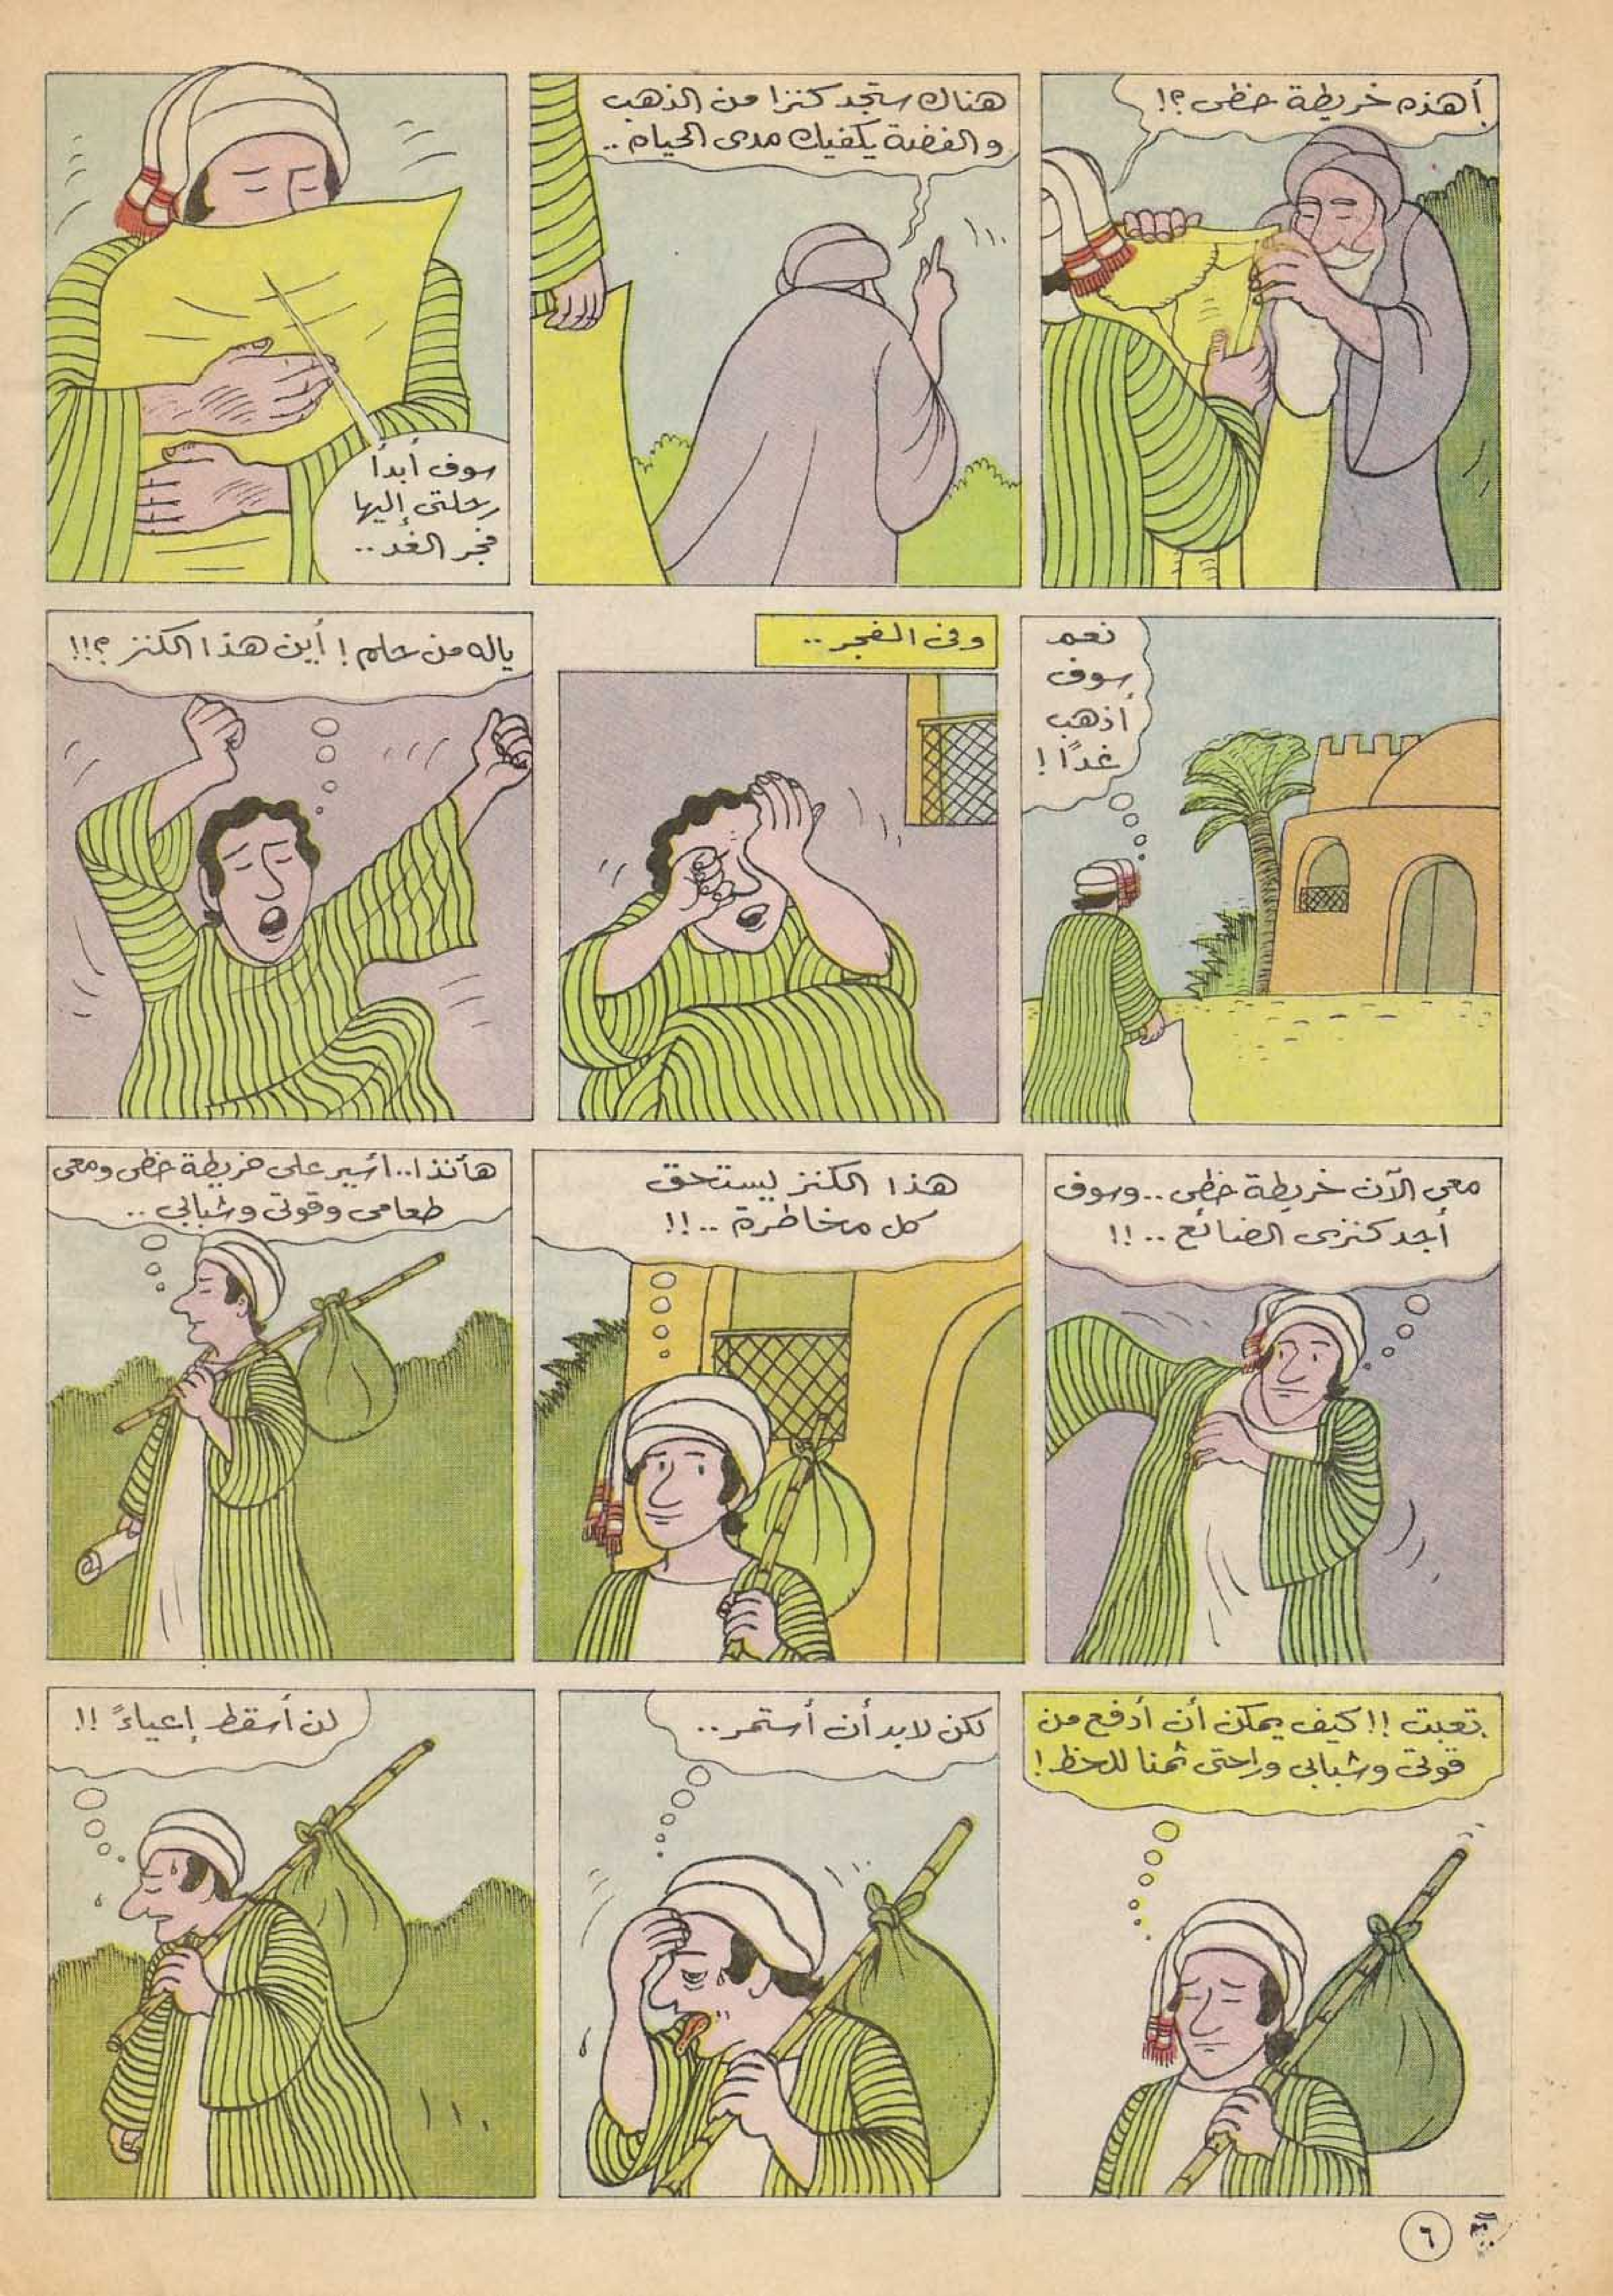 أهذه خريطة حظى ؟!
هناك ستجد كنزا من الذهب
والفضة يكفيك مدى الحياه ..
سوف أبدأ
رحلتى إليها
فجر الغد ..
نعم
سوف
أذهب
غدًا !
وفى الفجر ..
ياله من حلم ! أين هذا الكنز ؟!!
معى الآن خريطة حظى .. وسوف
أجد كنزى الضائع .. !!
هذا الكنز يستحق
كل مخاطرة .. !!
هأنذا .. أسير على خريطة حظى ومعى
طعامى وقوتى وشبابى ..
تعبت !! كيف يمكن أن أدفع من
قوتى وشبابى وراحتى ثمنا للحظ !
لكن لابد أن أستمر ..
لن أسقط إعياءً !!
٦